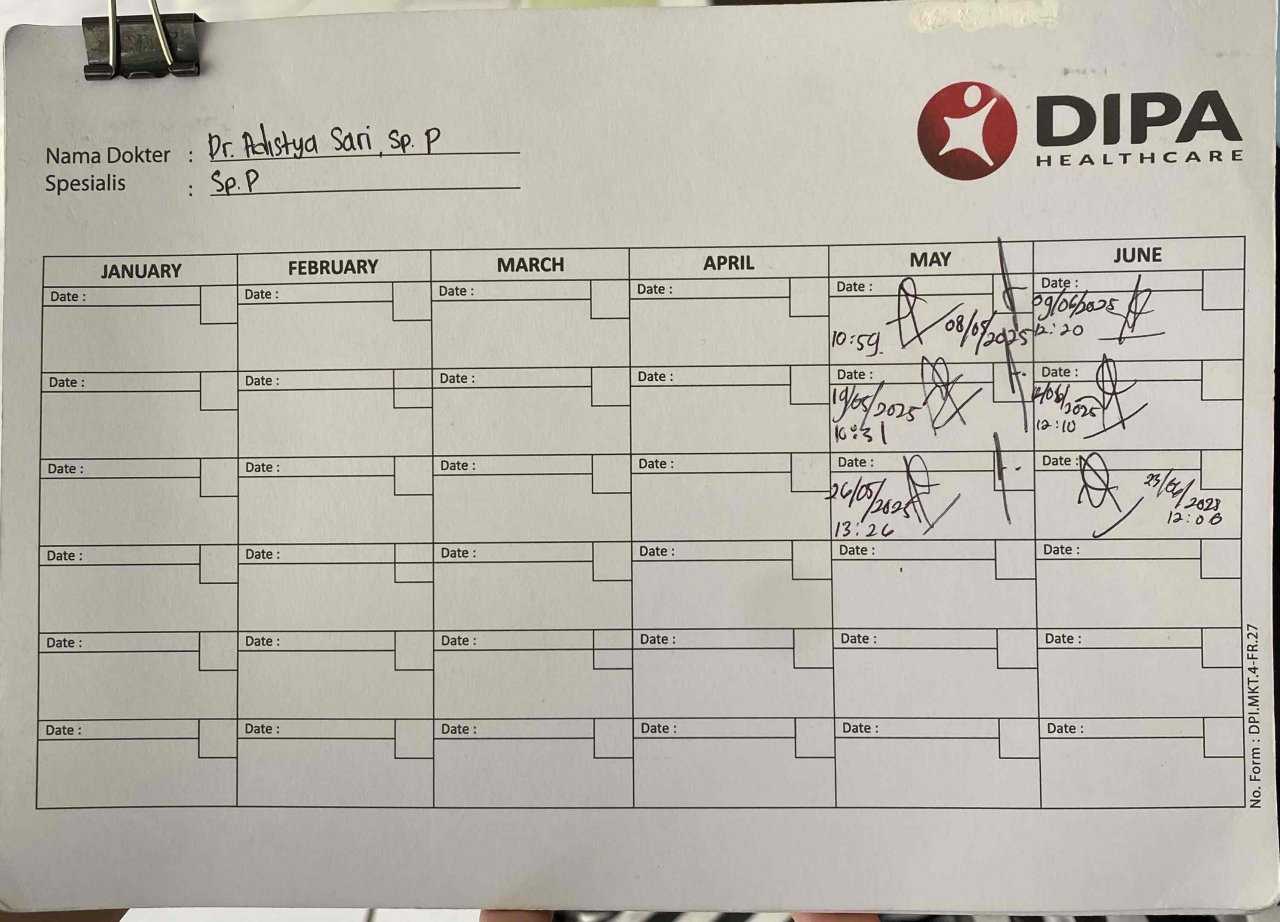 DIPA
HEALTHCARE
Nama Dokter : Dr. Adistya Sari, Sp. P
Spesialis : Sp. P
JANUARY FEBRUARY MARCH APRIL MAY JUNE
Date : Date : Date : Date : Date : Date :
10:59 08/05/2025 09/06/2025
12:20
Date : Date : Date : Date : Date : Date :
19/05/2025 /06/2025
10:31 12:10
Date : Date : Date : Date : Date : Date :
26/05/2025 23/06/2023
13:26 12:08
Date : Date : Date : Date : Date : Date :
Date : Date : Date : Date : Date : Date :
Date : Date : Date : Date : Date : Date :
No. Form : DPI.MKT.4-FR.27